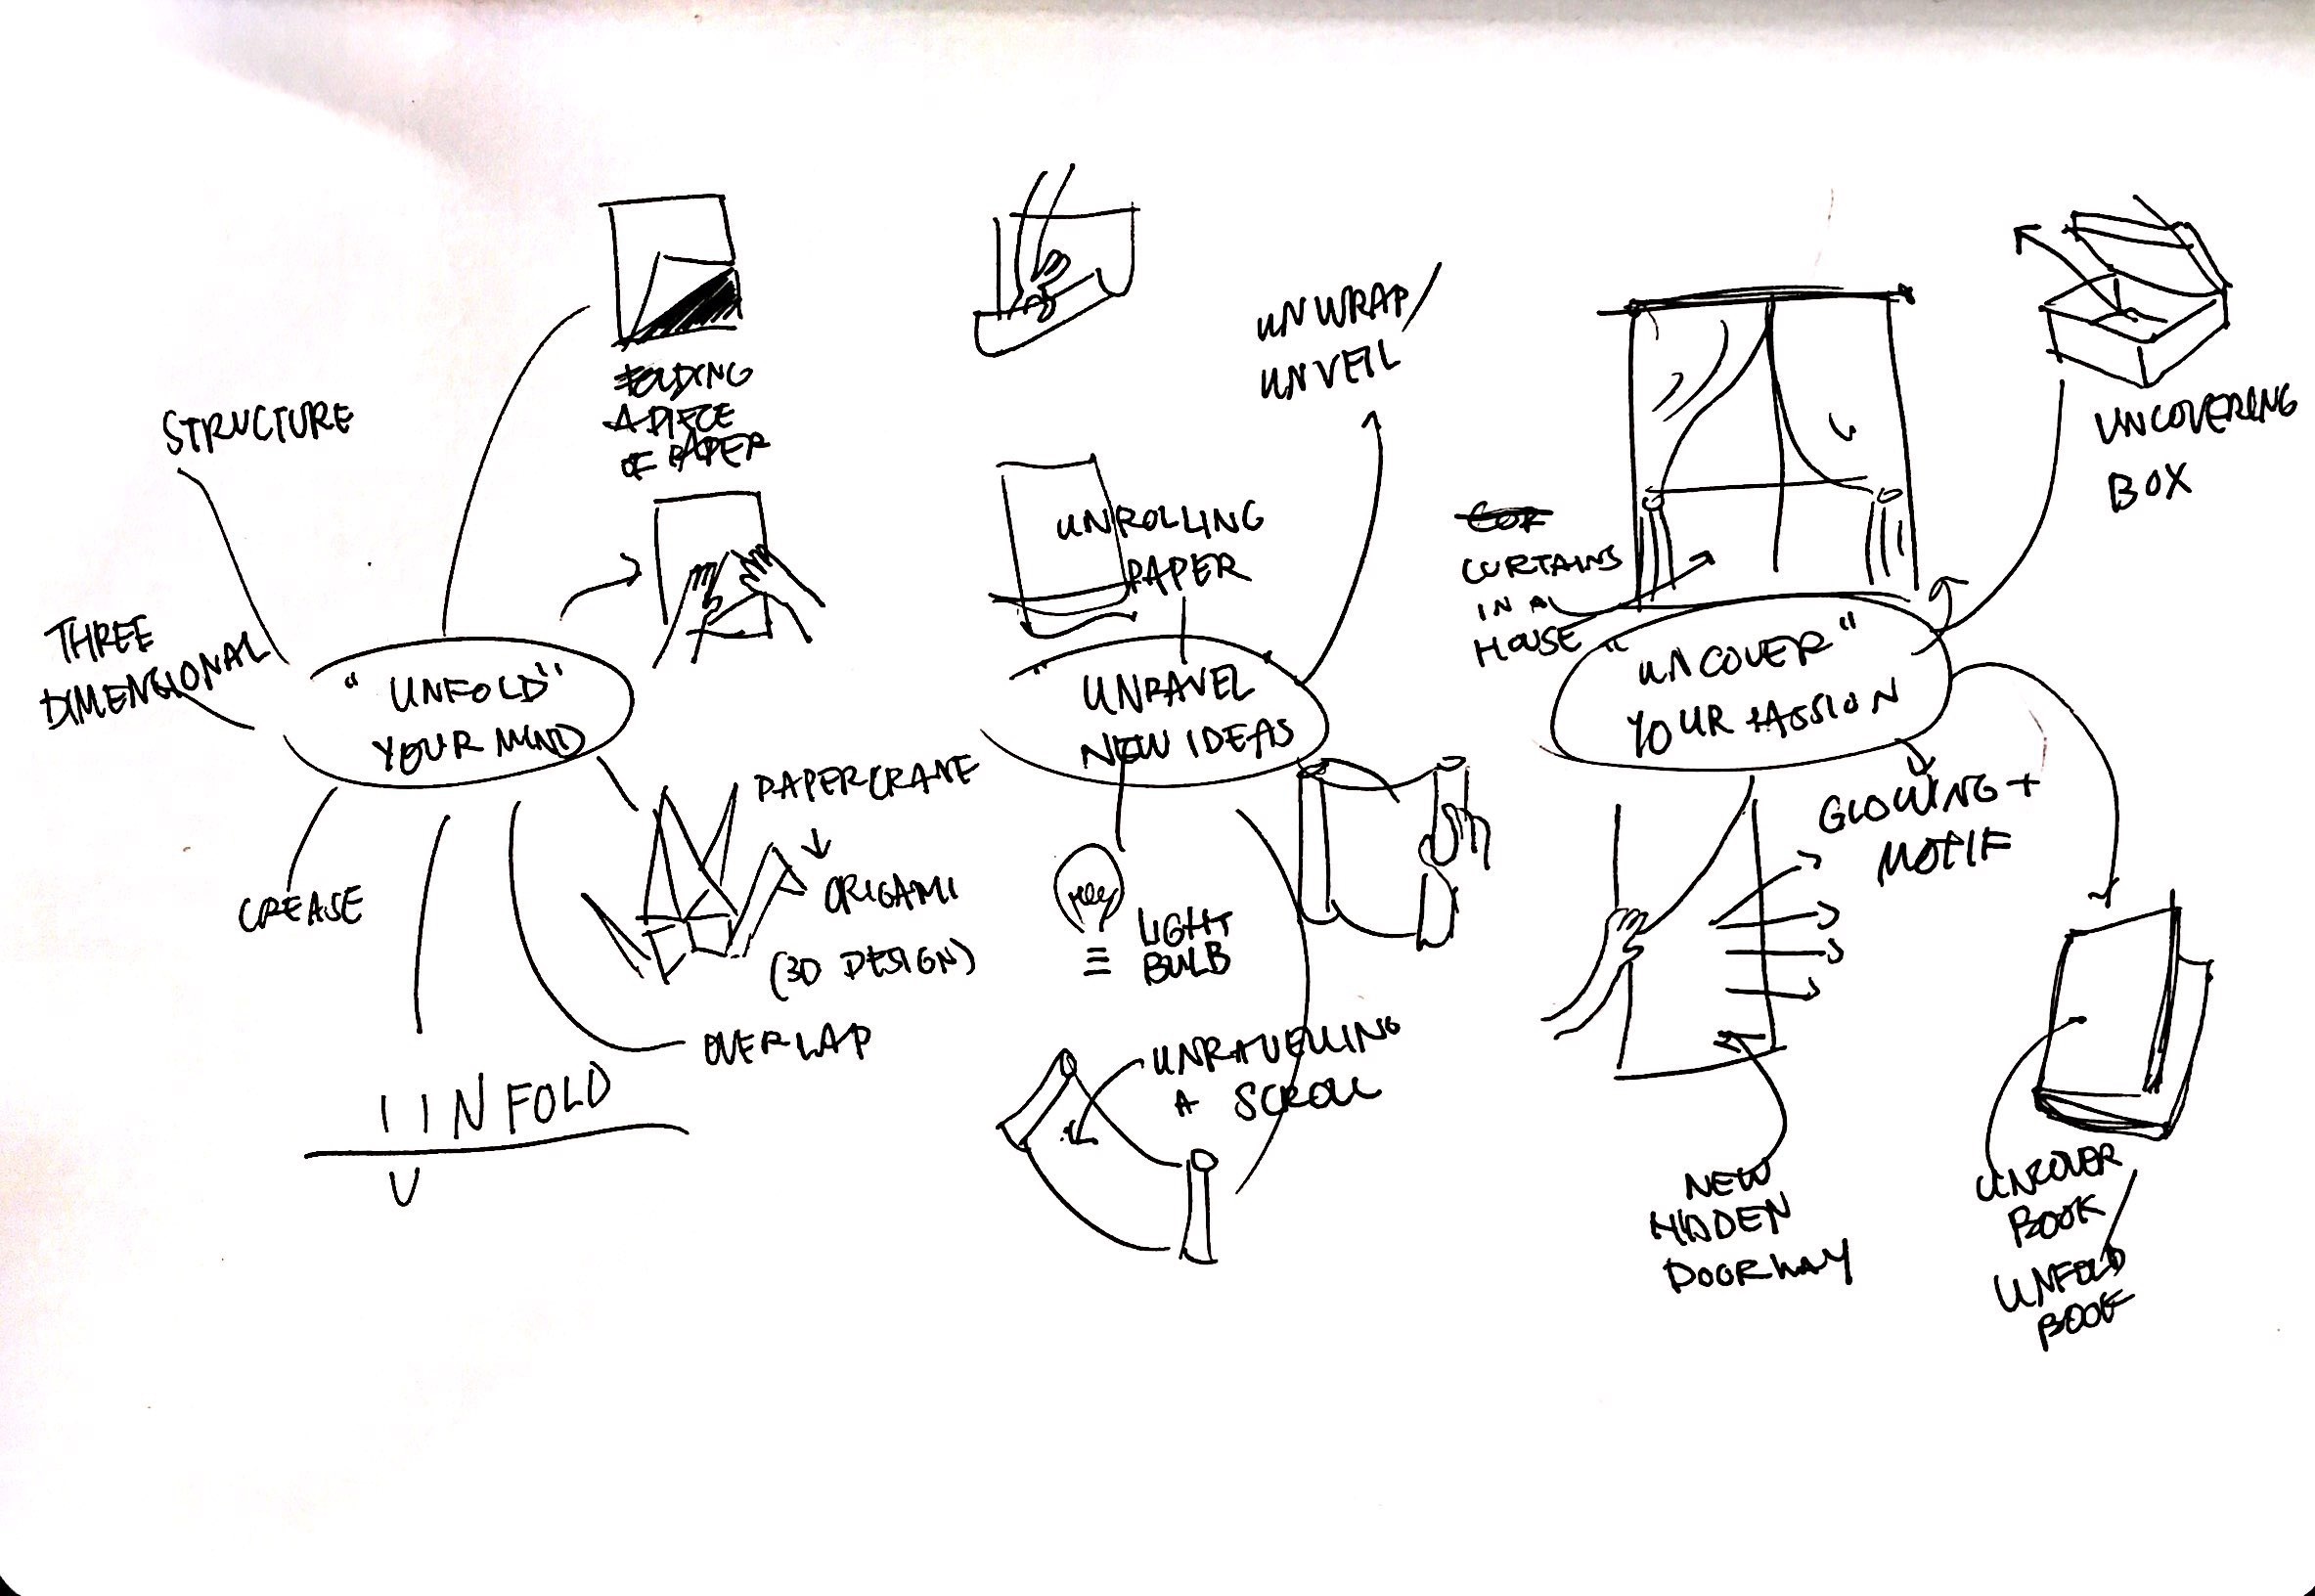 STRUCTURE
THREE
DIMENSIONAL
"UNFOLD"
YOUR MIND
FOLDING
A PIECE
OF PAPER
PAPERCRANE
ORIGAMI
(3D DESIGN)
OVERLAP
CREASE
UNFOLD
UNWRAP/
UNVEIL
UNROLLING
PAPER
"UNRAVEL
NEW IDEAS
LIGHT
BULB
UNRAVELLING
A SCROLL
CURTAINS
IN A
HOUSE
"UNCOVER"
YOUR PASSION
UNCOVERING
BOX
GLOWING +
MOTIF
NEW
HIDDEN
DOORWAY
UNCOVER
BOOK
UNFOLD
BOOK